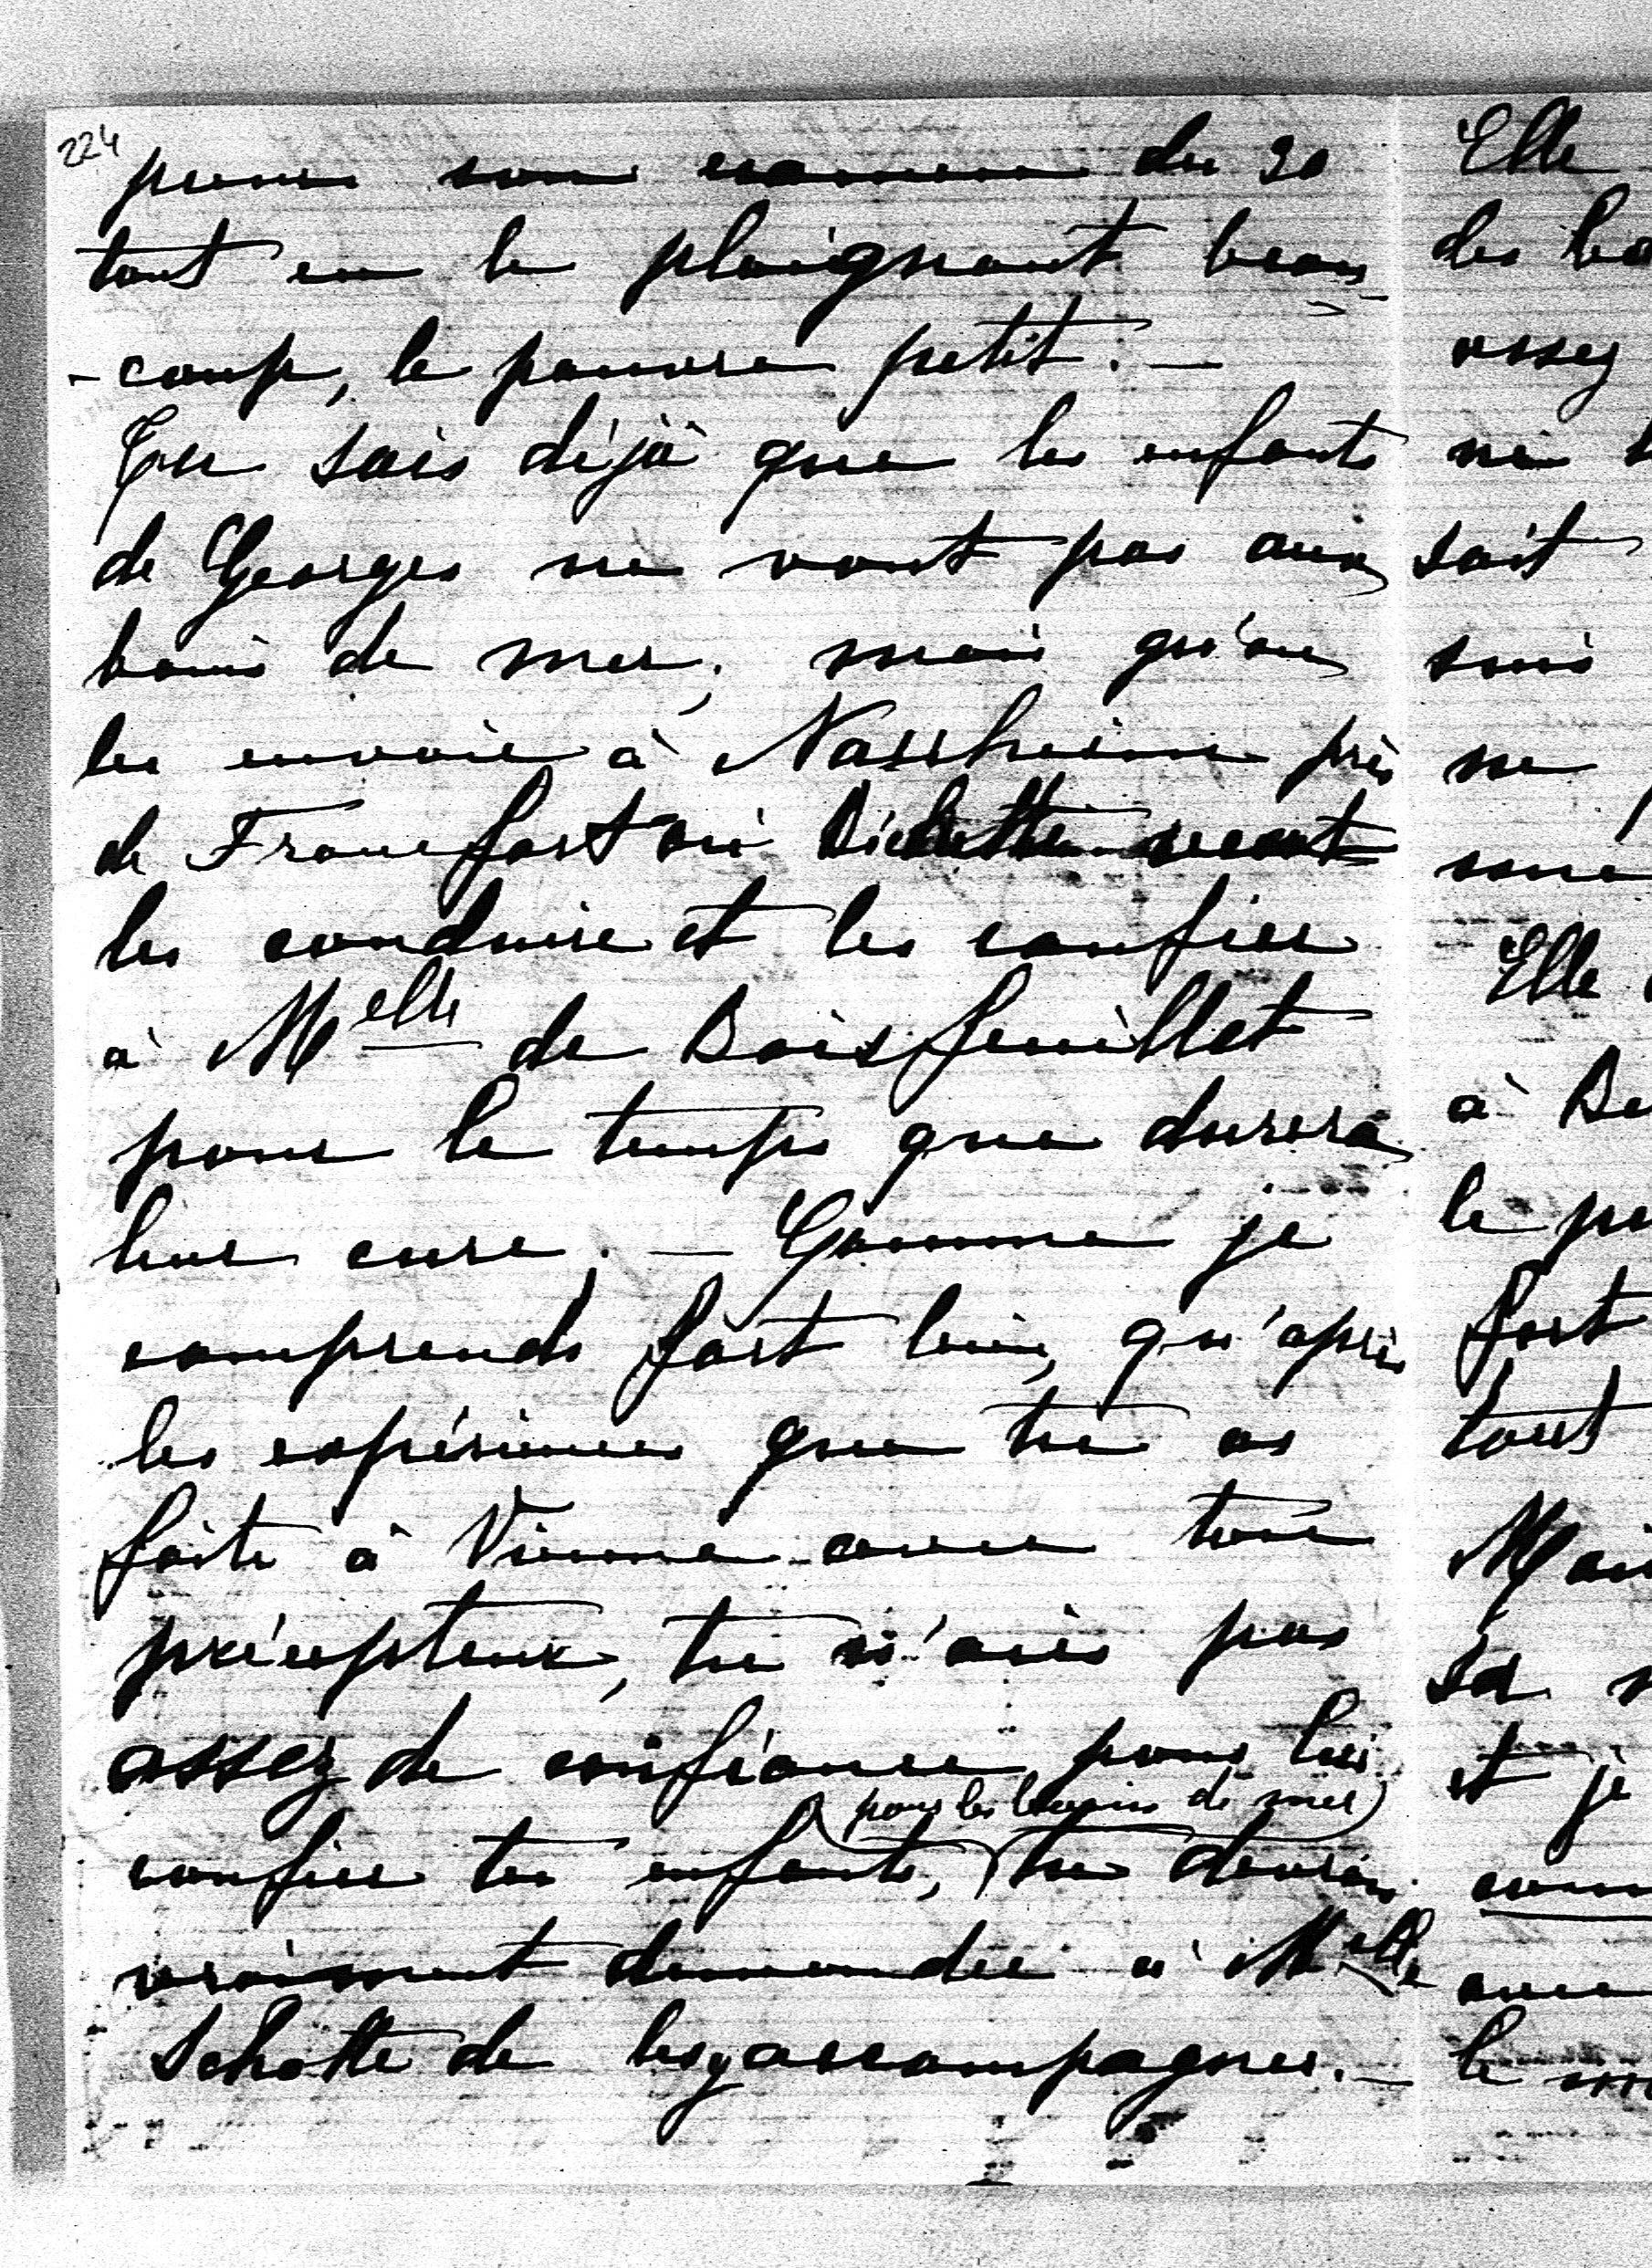 224
pour son examen du 30
tout en le plaignant beau-
-coup, le pauvre petit. —
Tu sais déjà que les enfants
de Georges ne vont pas aux
bains de mer, mais qu'on
les envoie à Nauheim près
de Francfort où veut
les conduire et les confier
à Melle de Boisfeuillet
pour le temps que durera
leur cure. — Comme je
comprends fort bien, qu'après
les expériences que tu as
faite à Vienne avec ton
précepteur, tu n'aies pas
assez de confiance pour lui
(pour les bains de mer)
confier tes enfants, tu devrais
vraiment demander à Melle
Schotte de les y accompagner. —
Elle
des
assez
ni
sait
suis
ne
Elle
à
le
fort
tout
Sa
et je
le